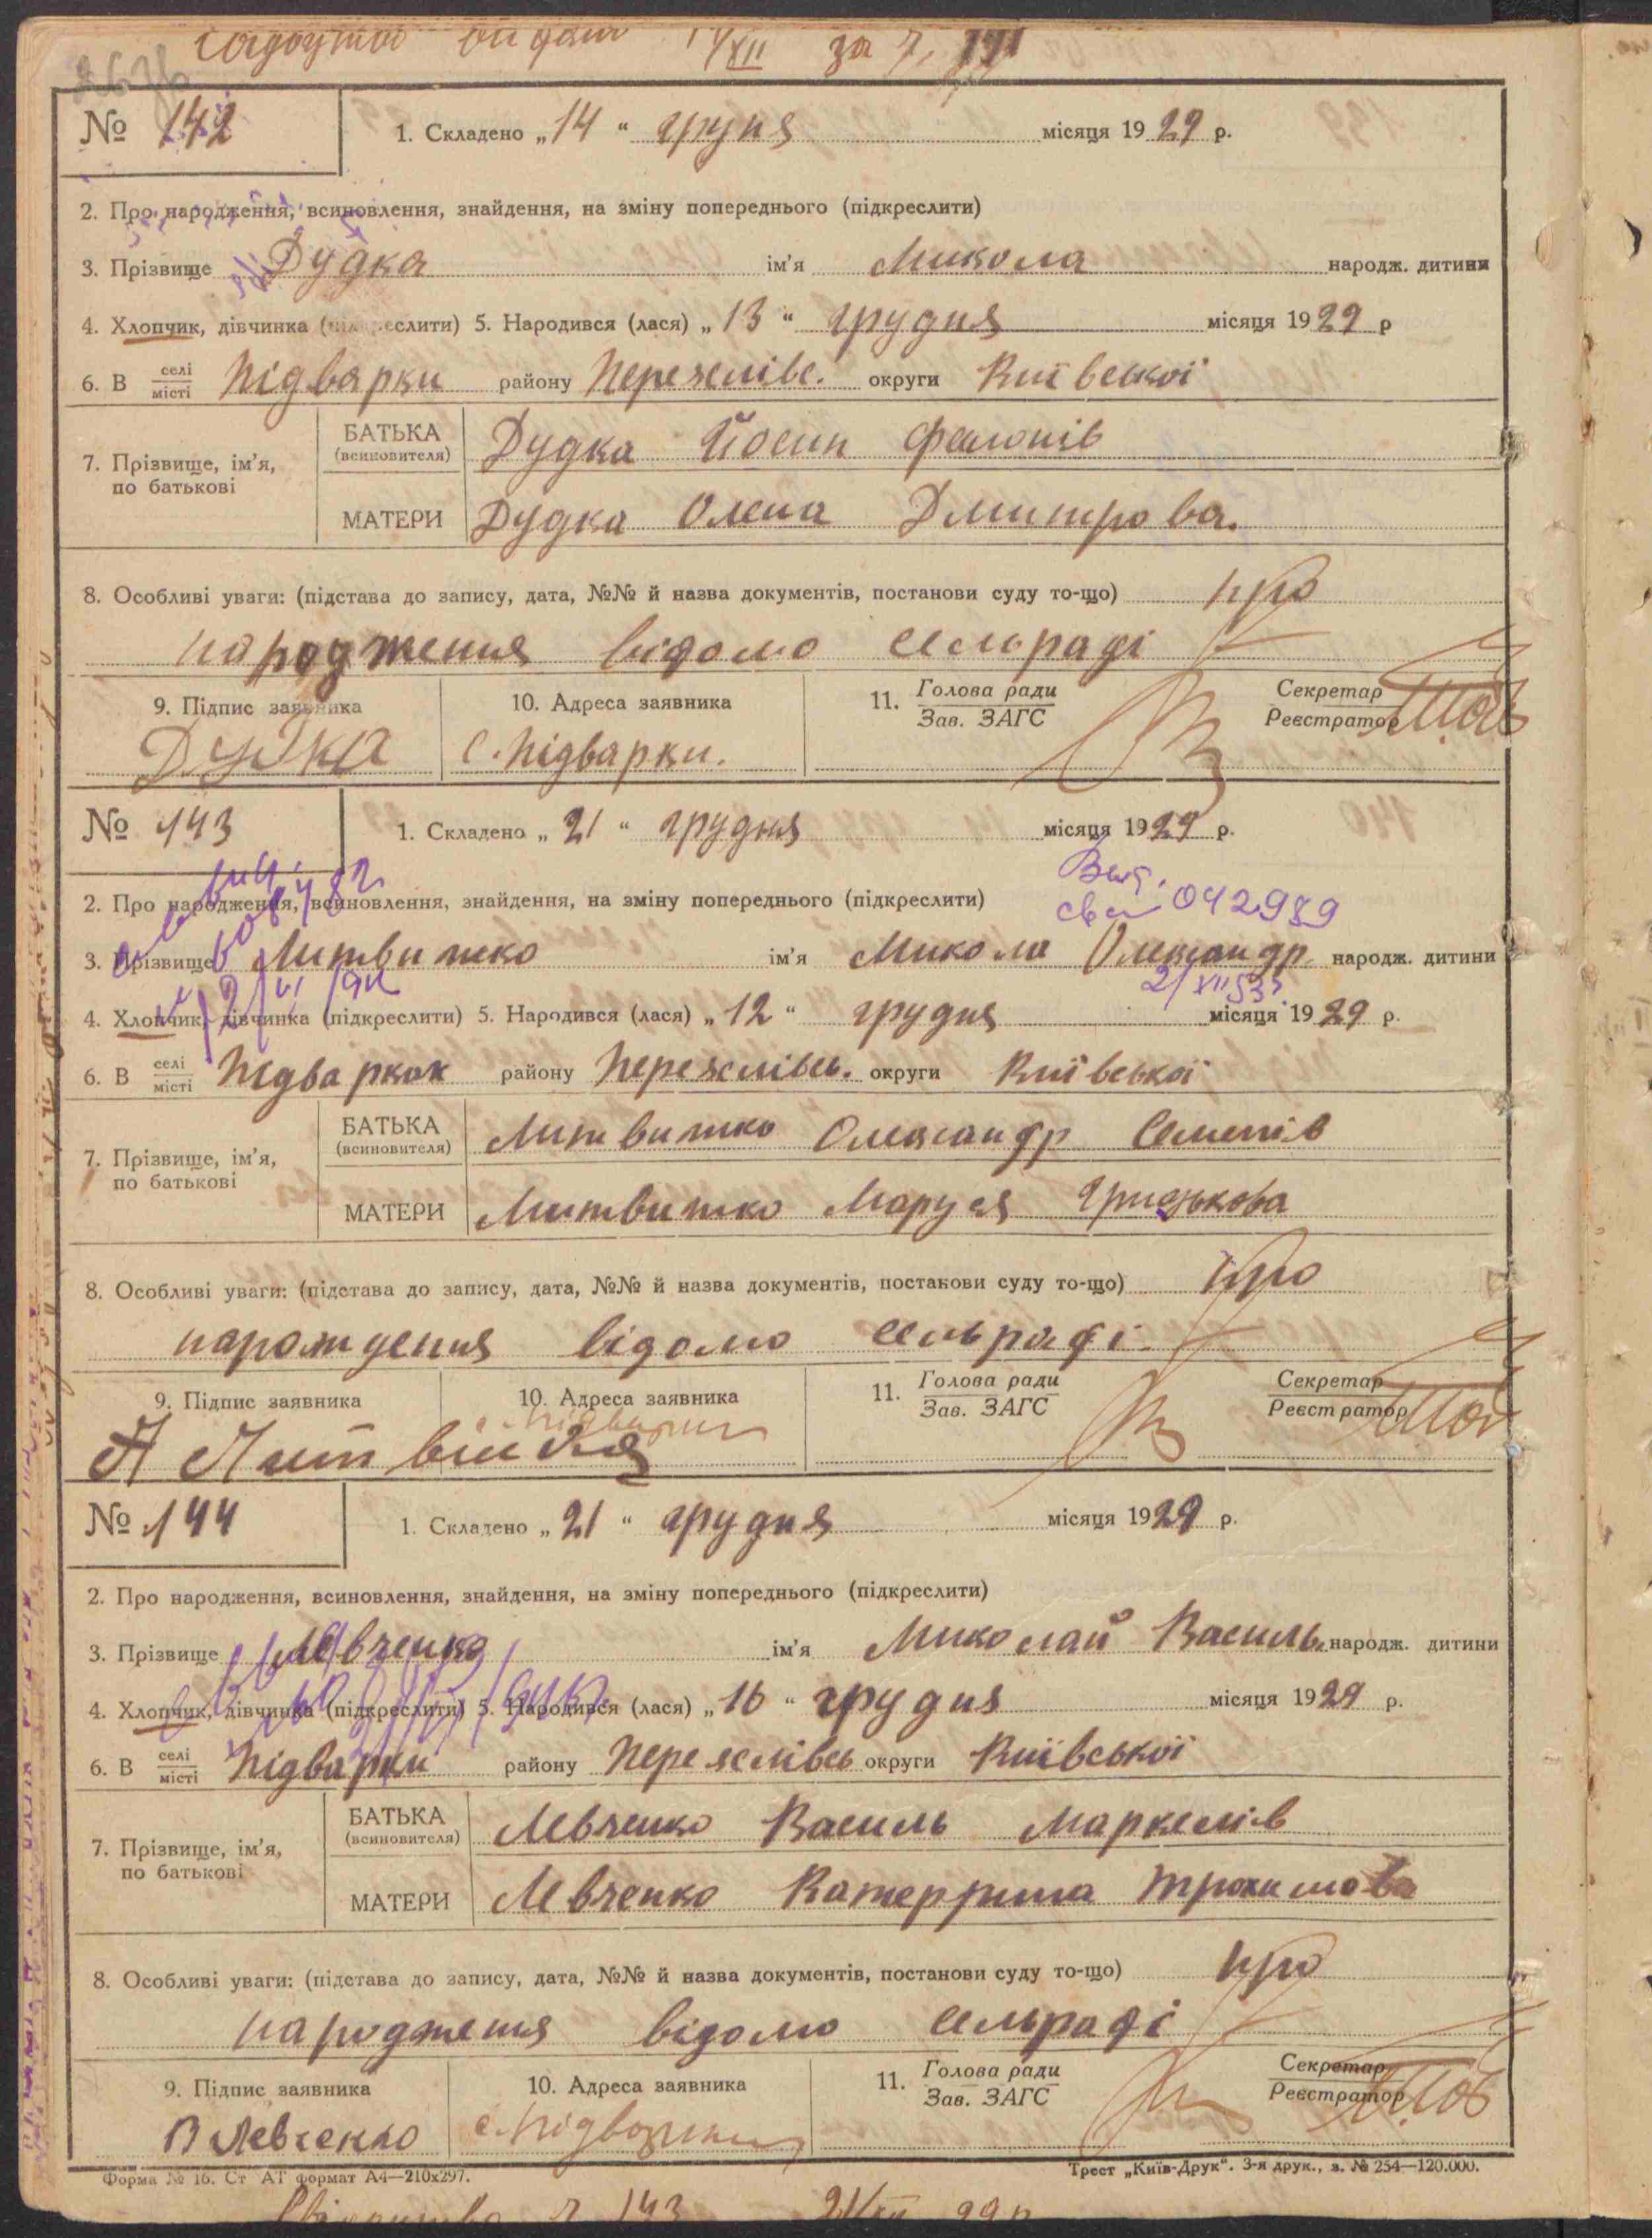 XII за ч. 141
№ 142
1. Складено „14" груня місяця 1929 р.
2. Про народження, всиновлення, знайдення, на зміну попереднього (підкреслити)
3. Прізвище Дудка ім'я Микола народж. дитини
4. Хлопчик, дівчинка (підкреслити) 5. Народився (лася) „13" грудня місяця 1929 р
6. В селі місті Підварки району Переяслівс. округи Київської
7. Прізвище, ім'я, по батькові
БАТЬКА (всиновителя) Дудка Йосип
МАТЕРИ Дудка Олена Дмитрова.
8. Особливі уваги: (підстава до запису, дата, №№ й назва документів, постанови суду то-що) про
народження відомо сельраді
9. Підпис заявника 10. Адреса заявника 11. Голова ради Зав. ЗАГС Секретар Реєстратор
Дудка с. Підварки.
№ 143
1. Складено „21" грудня місяця 1929 р.
2. Про народження, всиновлення, знайдення, на зміну попереднього (підкреслити)
042989
3. Прізвище Литвиненко ім'я Микола Олександр народж. дитини
2/XII 53
4. Хлопчик, дівчинка (підкреслити) 5. Народився (лася) „12" грудня місяця 1929 р.
6. В селі місті Підварках району Переяслівсь. округи Київської
7. Прізвище, ім'я, по батькові
БАТЬКА (всиновителя) Литвиненко Олександр Семенів
МАТЕРИ Литвиненко Маруся Грицькова
8. Особливі уваги: (підстава до запису, дата, №№ й назва документів, постанови суду то-що) про
нарождення відомо сельраді.
9. Підпис заявника 10. Адреса заявника 11. Голова ради Зав. ЗАГС Секретар Реєстратор
с. Підварки
№ 144
1. Складено „21" грудня місяця 1929 р.
2. Про народження, всиновлення, знайдення, на зміну попереднього (підкреслити)
3. Прізвище Левченко ім'я Миколай Василь. народж. дитини
4. Хлопчик, дівчинка (підкреслити) 5. Народився (лася) „16" грудня місяця 1929 р.
6. В селі місті Підварки району Переяслівсь округи Київської
7. Прізвище, ім'я, по батькові
БАТЬКА (всиновителя) Левченко Василь Маркелів
МАТЕРИ Левченко Катеррина Трохимова
8. Особливі уваги: (підстава до запису, дата, №№ й назва документів, постанови суду то-що) про
народження відомо сельраді
9. Підпис заявника 10. Адреса заявника 11. Голова ради Зав. ЗАГС Секретар Реєстратор
В Левченко с. Підварки
Форма № 16. Ст АТ формат А4—210х297. Трест „Київ-Друк". 3-я друк., з. № 254—120.000.
143